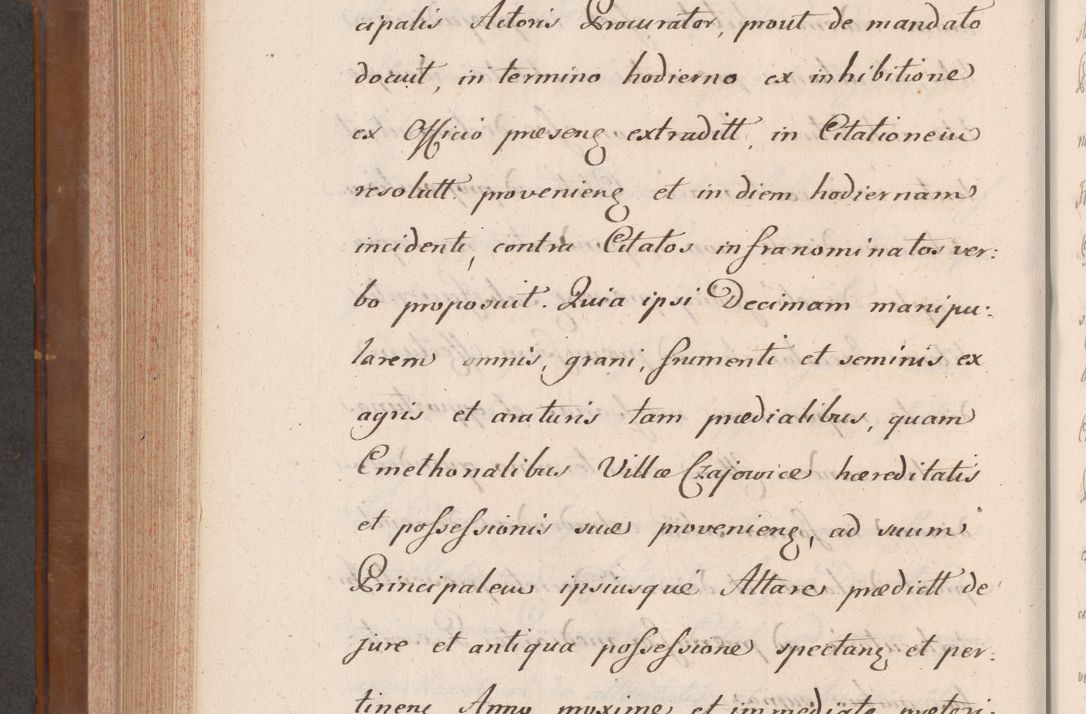 cipalis Actoris Procurator, prout de mandato
docuit, in termino hodierno ex inhibitione
ex Officio præsenꝫ extraditt, in Citationem
resolutt provenienꝫ et in diem hodiernam
incidenti, contra Citatos infranominatos ver:
bo proposuit. Quia ipsi Decimam manipu:
larem omnis, grani, frumenti et seminis ex
agris et araturis tam prædialibus, quam
Cmethonalibus Villæ Czajowice hæreditatis
et possessionis suæ provenienꝫ, ad suum
Principalem ipsiusque Altare prædictt de
jure et antiqua possessione spectanꝫ et per:
tinens Anno proxime et immediate præteri: